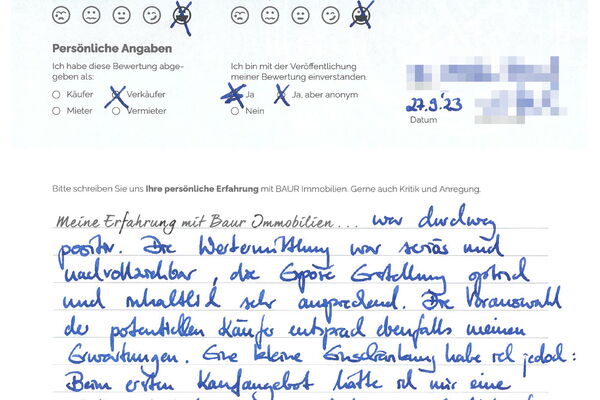 Persönliche Angaben
Ich habe diese Bewertung abge-
geben als:
Käufer
Verkäufer
Mieter
Vermieter
Ich bin mit der Veröffentlichung
meiner Bewertung einverstanden.
Ja
Ja, aber anonym
Nein
27.9.'23
Datum
Bitte schreiben Sie uns Ihre persönliche Erfahrung mit BAUR Immobilien. Gerne auch Kritik und Anregung.
Meine Erfahrung mit Baur Immobilien... war durchweg
positiv. Die Wertermittlung war seriös und
nachvollziehbar, die Exposé Erstellung optisch
und inhaltlich sehr ansprechend. Die Vorauswahl
der potentiellen Käufer entsprach ebenfalls meinen
Erwartungen. Eine kleine Einschränkung habe ich jedoch:
Beim ersten Kaufangebot hätte ich mir eine